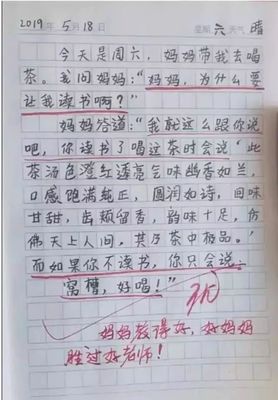 2019年5月18日 星期六 天气 晴
今天是周六，妈妈带我去喝
茶。我问妈妈："妈妈，为什么要
让我读书啊？"
妈妈答道："我就这么跟你说
吧，你读书了喝这茶时会说'此
茶汤色澄红透亮气味幽香如兰，
口感饱满纯正，圆润如诗，回味
甘甜，齿颊留香，韵味十足，仿
佛天上人间，其乃茶中极品。'
而如果你不读书，你只会说：
窝槽，好喝！'"
妈妈教得好，好妈妈
胜过好老师！